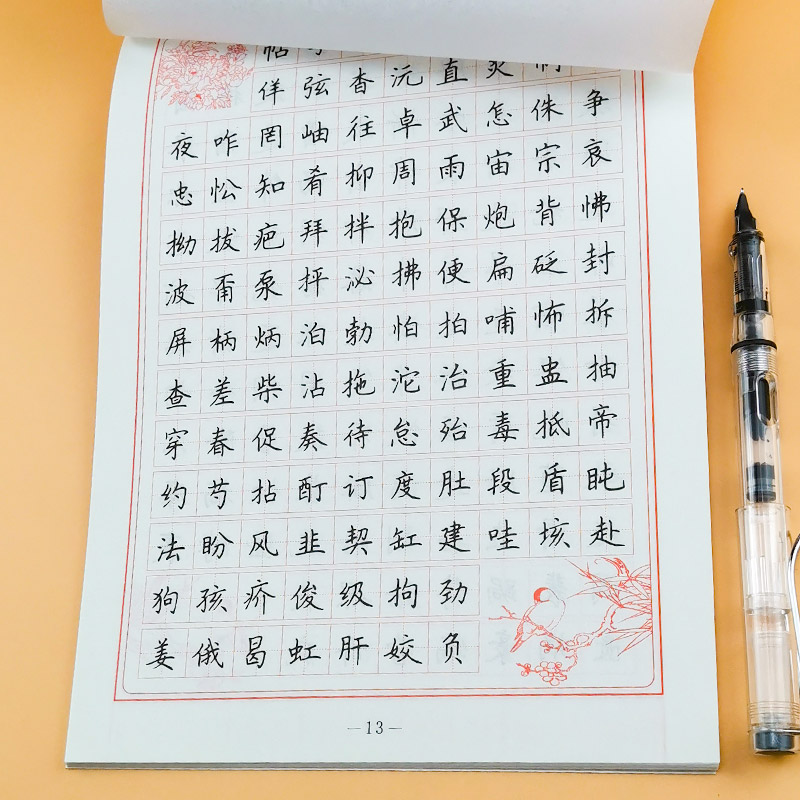 帖
佯弦杳沅直炙
夜咋罔岫往卓武怎侏争
忠忪知肴抑周雨宙宗哀
拗拔疤拜拌抱保炮背怫
波甭泵抨泌拂便扁砭封
屏柄炳泊勃怕拍哺怖拆
查差柴沾拖沱治重盅抽
穿春促奏待怠殆毒抵帝
约芍拈酊订度肚段盾盹
法盼风韭契缸建哇垓赴
狗孩疥俊级拘劲
姜俄曷虹肝姣负
—13—